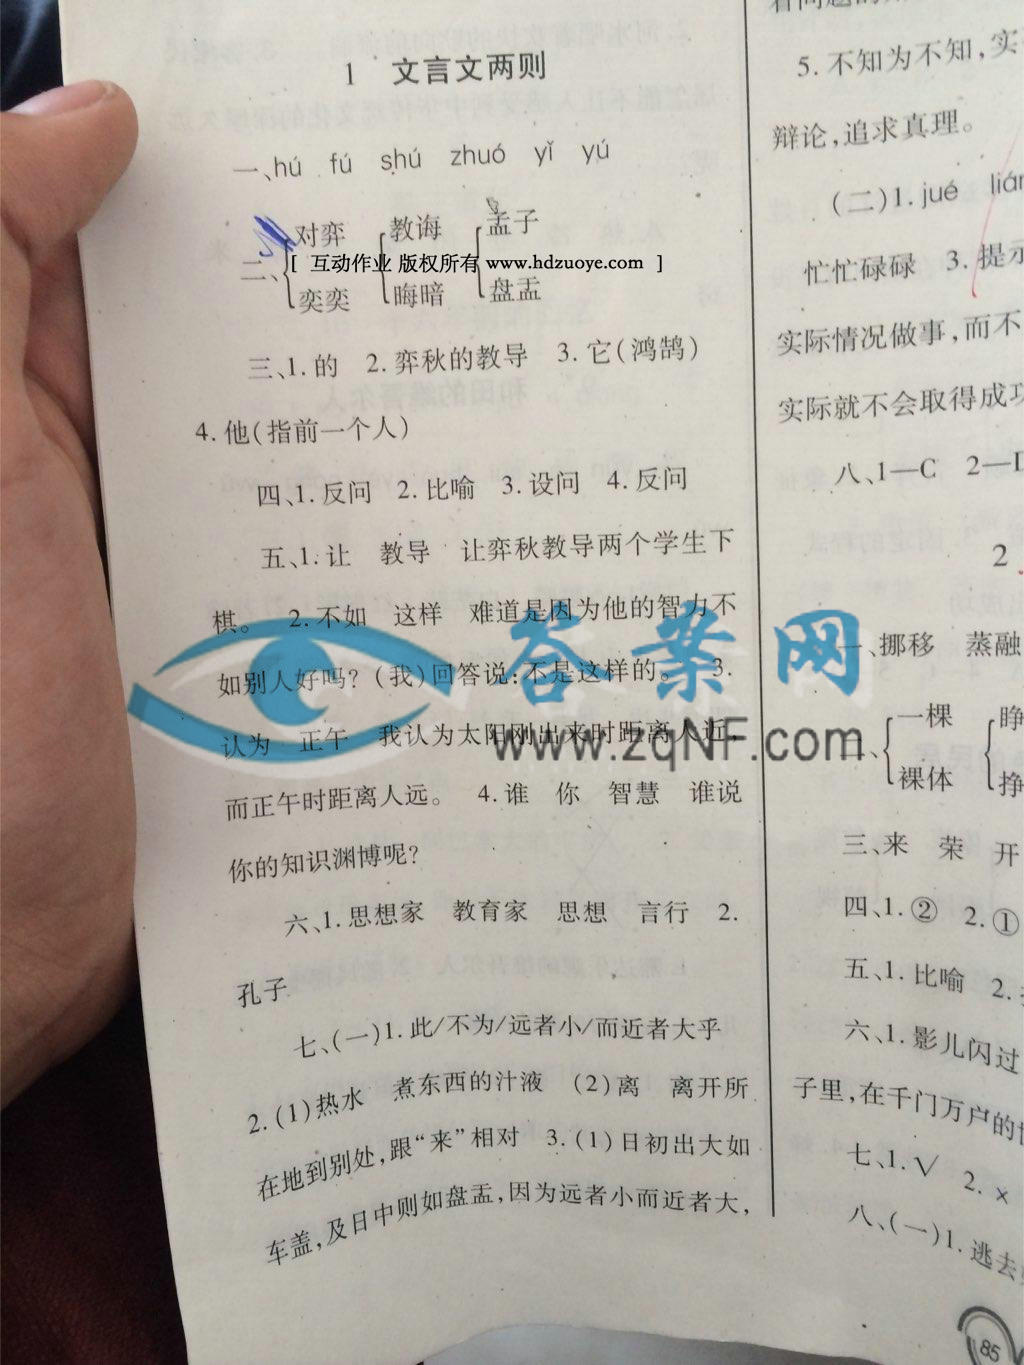 1 文言文两则
一、hú fú shú zhuó yǐ yú
二、{对弈 {教诲 {孟子
[ 互动作业 版权所有 www.hdzuoye.com ]
奕奕 晦暗 盘盂
三、1.的 2.弈秋的教导 3.它(鸿鹄)
4.他(指前一个人)
四、1.反问 2.比喻 3.设问 4.反问
五、1.让 教导 让弈秋教导两个学生下
棋。 2.不如 这样 难道是因为他的智力不
如别人好吗?(我)回答说:不是这样的。 3.
认为 正午 我认为太阳刚出来时距离人近,
而正午时距离人远。 4.谁 你 智慧 谁说
你的知识渊博呢?
六、1.思想家 教育家 思想 言行 2.
孔子
七、(一)1.此/不为/远者小/而近者大乎
2.(1)热水 煮东西的汁液 (2)离 离开所
在地到别处,跟“来”相对 3.(1)日初出大如
车盖,及日中则如盘盂,因为远者小而近者大,
答案网
www.zqNF.com
5.不知为不知,实
辩论,追求真理。
(二)1.jué
忙忙碌碌 3.提示
实际情况做事,而不
实际就不会取得成功
八、1—C 2—
2
一、挪移 蒸融
二、{一棵 {睁
裸体 挣
三、来 荣 开
四、1.② 2.①
五、1.比喻 2.
六、1.影儿闪过
子里,在千门万户的
七、1.√ 2.×
八、(一)1.逃去
85